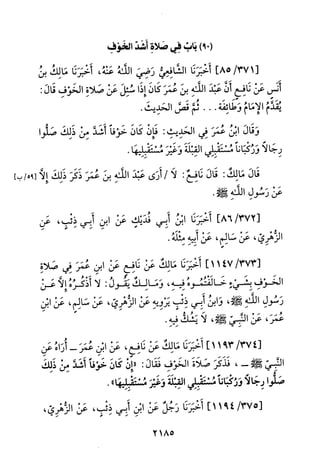 (٩٠) بَابٌ فِي صَلَاةِ أَشَدِّ الخَوْفِ
[٨٥/٣٧١] أَخْبَرَنَا الشَّافِعِيُّ رَضِيَ اللَّهُ عَنْهُ، أَخْبَرَنَا مَالِكُ بنُ
أَنَسٍ عَنْ نَافِعٍ أَنَّ عَبْدَ اللَّهِ بنَ عُمَرَ كَانَ إِذَا سُئِلَ عَنْ صَلَاةِ الخَوْفِ قَالَ:
يُقَدَّمُ الإِمَامُ وَطَائِفَة... ثُمَّ قَصَّ الحَدِيثَ.
وَقَالَ ابْنُ عُمَرَ فِي الحَدِيثِ: فَإِنْ كَانَ خَوْفاً أَشَدَّ مِنْ ذَلِكَ صَلُّوا
رِجَالاً وَرُكْبَاناً مُسْتَقْبِلِي القِبْلَةِ وَغَيْرَ مُسْتَقْبِلِيهَا.
قَالَ مَالِكٌ: قَالَ نَافِعٌ: لَا / أَرَى عَبْدَ اللَّهِ بنَ عُمَرَ ذَكَرَ ذَلِكَ إِلَّا [٥٩/ب]
عَنْ رَسُولِ اللَّهِ ﷺ.
[٨٦/٣٧٢] أَخْبَرَنَا ابْنُ أَبِي فُدَيْكٍ عَنْ ابنِ أَبِي ذِئْبٍ، عَنِ
الزُّهْرِيِّ، عَنْ سَالِمٍ، عَنْ أَبِيهِ مِثْلَهُ.
[١١٤٧/٣٧٣] أَخْبَرَنَا مَالِكٌ عَنْ نَافِعٍ عَنْ ابنِ عُمَرَ فِي صَلَاةِ
الخَوْفِ بِشَيْءٍ خَالَفْتُمُوهُ فِيهِ، وَمَالِكٌ يَقُولُ: لَا أَذْكُرُهُ إِلَّا عَنْ
رَسُولِ اللَّهِ ﷺ، وَابنُ أَبِي ذِئْبٍ يَرْوِيهِ عَنْ الزُّهْرِيِّ، عَنْ سَالِمٍ، عَنْ ابْنِ
عُمَرَ، عَنْ النَّبِيِّ ﷺ، لَا يَشُكُّ فِيهِ.
[١١٩٣/٣٧٤] أَخْبَرَنَا مَالِكٌ عَنْ نَافِعٍ، عَنْ ابْنِ عُمَرَ - أُرَاهُ عَنِ
النَّبِيِّ ﷺ -، فَذَكَرَ صَلَاةَ الخَوْفِ فَقَالَ: «إِنْ كَانَ خَوْفاً أَشَدَّ مِنْ ذَلِكَ
صَلُّوا رِجَالاً وَرُكْبَاناً مُسْتَقْبِلِي القِبْلَةِ وَغَيْرَ مُسْتَقْبِلِيهَا».
[١١٩٤/٣٧٥] أَخْبَرَنَا رَجُلٌ عَنْ ابْنِ أَبِي ذِئْبٍ، عَنْ الزُّهْرِيِّ،
٢١٨٥